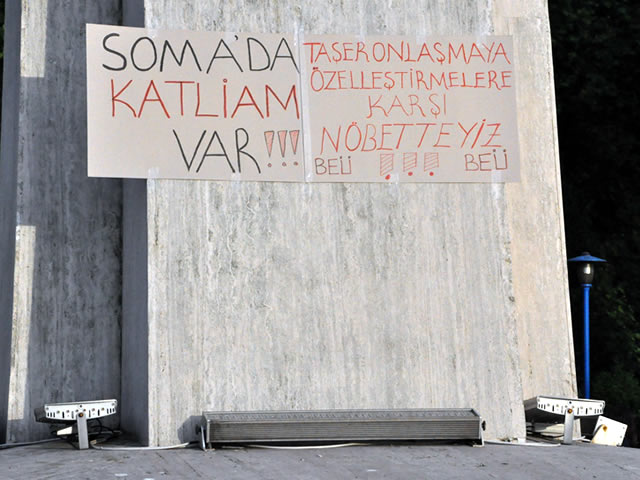 SOMA'DA
KATLİAM
VAR!!!
TAŞERONLAŞMAYA
ÖZELLEŞTİRMELERE
KARŞI
NÖBETTEYİZ
BEÜ !!! BEÜ